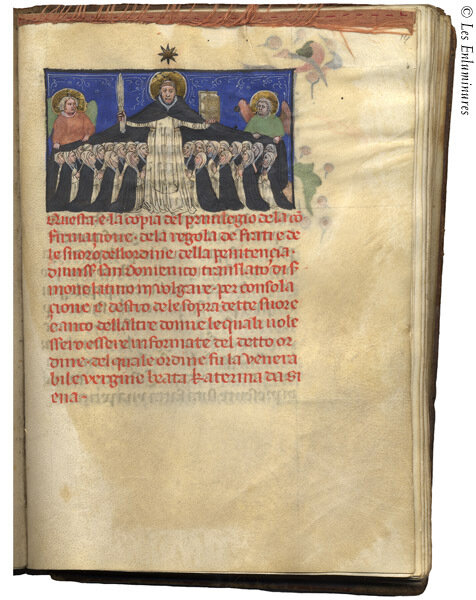 © Les Enluminures
Questa e la copia del privilegio de la co
firmaçione · dela regola de frati e de
le suoro dell ordine della penitençia ·
di miss san Domenico translato di s
mone latino in vulgare · per consola
çione e destro dele sopra dette suore
e anco dell altre donne le quali vole
ssero essere informate del detto or
dine · del quale ordine fu la venera
bile vergine beata Katerina da Si
ena ·